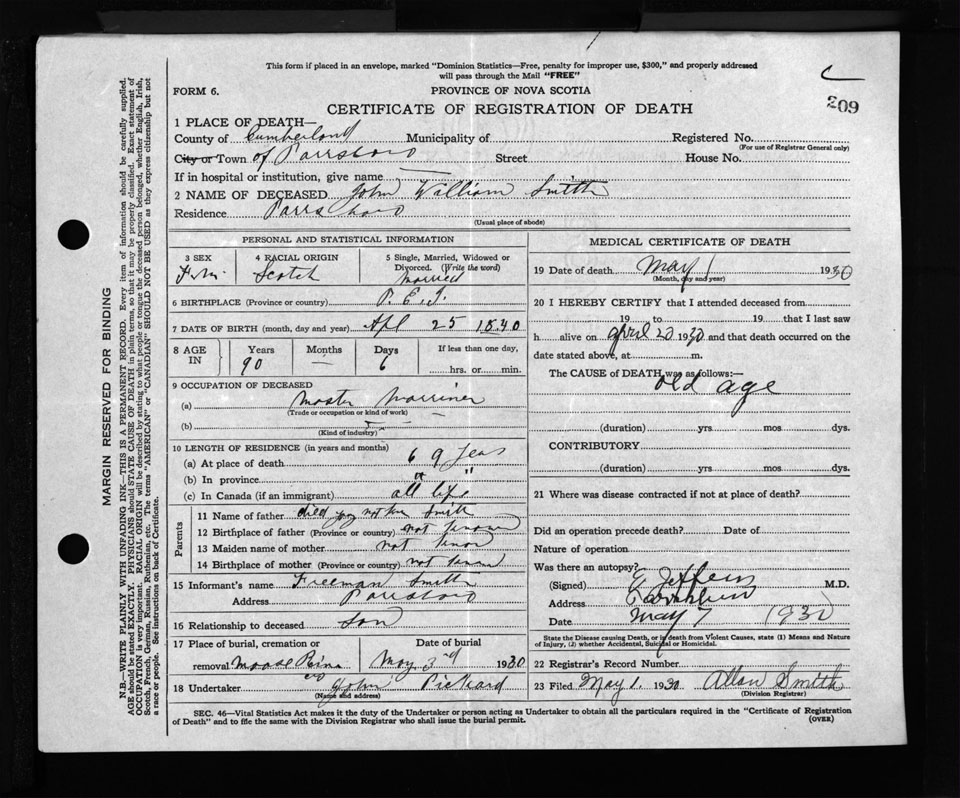 This form if placed in an envelope, marked "Dominion Statistics—Free, penalty for improper use, $300," and properly addressed
will pass through the Mail "FREE"
FORM 6. PROVINCE OF NOVA SCOTIA
209
CERTIFICATE OF REGISTRATION OF DEATH
1 PLACE OF DEATH—
County of Cumberland Municipality of Registered No.
(For use of Registrar General only)
City or Town of Parrsboro Street House No.
If in hospital or institution, give name
2 NAME OF DECEASED John William Smith
Residence Parrsboro
(Usual place of abode)
PERSONAL AND STATISTICAL INFORMATION
3 SEX 4 RACIAL ORIGIN 5 Single, Married, Widowed or
Divorced. (Write the word)
Scotch Married
6 BIRTHPLACE (Province or country) P. E. I.
7 DATE OF BIRTH (month, day and year) Apl 25 1840
8 AGE IN Years Months Days If less than one day,
90 — 6 hrs. or min.
9 OCCUPATION OF DECEASED
(a) Master Marriner
(Trade or occupation or kind of work)
(b)
(Kind of industry)
10 LENGTH OF RESIDENCE (in years and months)
(a) At place of death 69 Years
(b) In province " "
(c) In Canada (if an immigrant) all life
Parents
11 Name of father Smith
12 Birthplace of father (Province or country) not known
13 Maiden name of mother not known
14 Birthplace of mother (Province or country) not known
15 Informant's name Freeman Smith
Address Parrsboro
16 Relationship to deceased Son
17 Place of burial, cremation or Date of burial
removal Moose River May 3rd 1930
18 Undertaker John Pickard
(Name and address)
MEDICAL CERTIFICATE OF DEATH
19 Date of death May 1 1930
(Month, day and year)
20 I HEREBY CERTIFY that I attended deceased from
19 to 19 that I last saw
h alive on April 20 1930 and that death occurred on the
date stated above, at m.
The CAUSE of DEATH was as follows:—
old age
(duration) yrs mos dys.
CONTRIBUTORY
(duration) yrs mos dys.
21 Where was disease contracted if not at place of death?
Did an operation precede death? Date of
Nature of operation
Was there an autopsy?
(Signed) M.D.
Address
Date May 7 1930
State the Disease causing Death, or in death from Violent Causes, state (1) Means and Nature
of Injury, (2) whether Accidental, Suicidal or Homicidal.
22 Registrar's Record Number
23 Filed May 1. 1930 Allan Smith
(Division Registrar)
SEC. 46—Vital Statistics Act makes it the duty of the Undertaker or person acting as Undertaker to obtain all the particulars required in the "Certificate of Registration
of Death" and to file the same with the Division Registrar who shall issue the burial permit. (OVER)
MARGIN RESERVED FOR BINDING
N.B.—WRITE PLAINLY WITH UNFADING INK—THIS IS A PERMANENT RECORD. Every item of information should be carefully supplied.
AGE should be stated EXACTLY. PHYSICIANS should STATE CAUSE OF DEATH in plain terms, so that it may be properly classified. Exact statement of
OCCUPATION is very important. RACIAL ORIGIN will be described by stating to what people or tongue the deceased person belonged, whether English, Irish,
Scotch, French, German, Russian, Ruthenian, etc. The terms "AMERICAN" or "CANADIAN" SHOULD NOT BE USED as they express citizenship but not
a race or people. See instructions on back of Certificate.